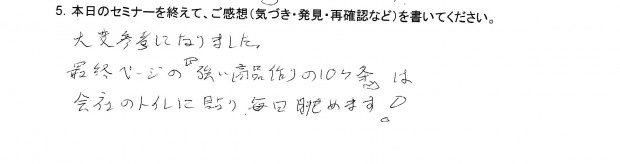 5. 本日のセミナーを終えて、ご感想(気づき・発見・再確認など)を書いてください。
大変参考になりました。
最終ページの『強い商品作りの10ヶ条』は
会社のトイレに貼り毎日眺めます!。